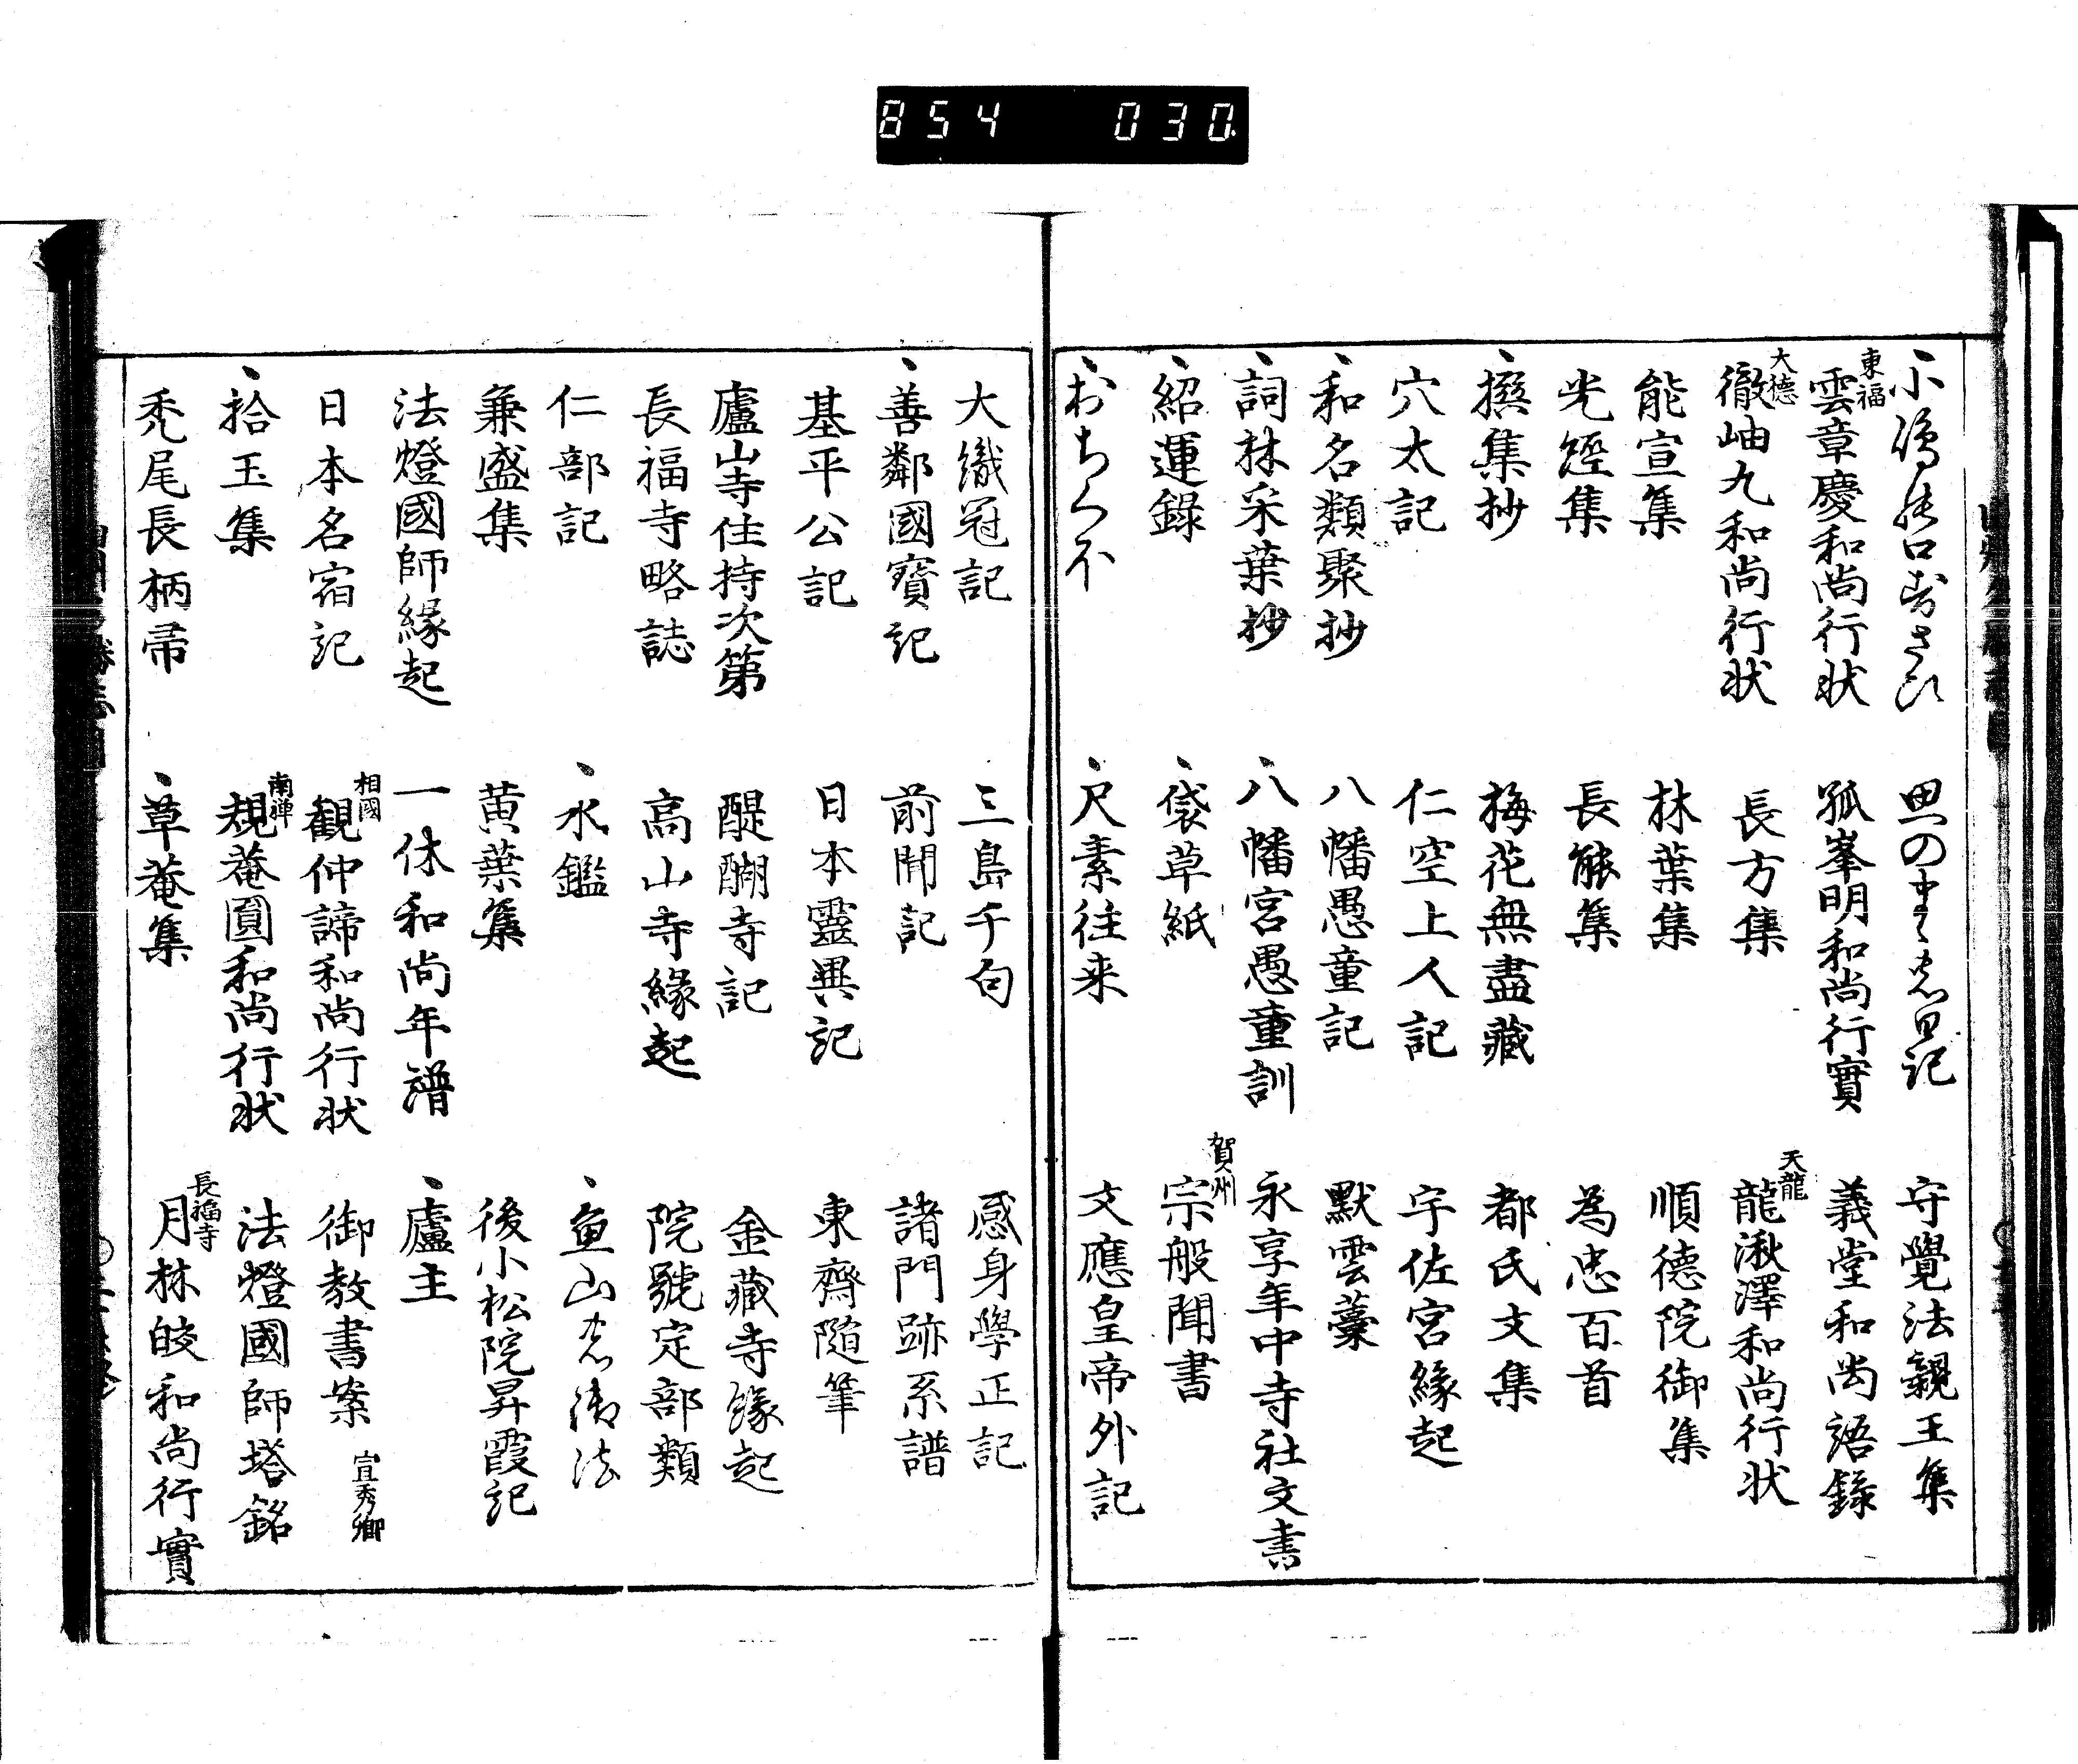 854 030
小嶋の口ずさひ 思のまゝの日記 守覺法親王集
東福 雲章慶和尚行状 孤峯明和尚行實 義堂和尚語録
大徳 徹岫九和尚行状 長方集 天龍 龍湫澤和尚行状
能宣集 林葉集 順徳院御集
光經集 長能集 為忠百首
撰集抄 梅花無盡藏 都氏文集
穴太記 仁空上人記 宇佐宮緣起
和名類聚抄 八幡愚童記 默雲藁
詞林采葉抄 八幡宮愚童訓 永享年中寺社文書
紹運錄 袋草紙 賀州 宗般聞書
おちくぼ 尺素往来 文應皇帝外記
大織冠記 三島千句 感身學正記
善鄰國寶記 前聞記 諸門跡系譜
基平公記 日本靈異記 東齋隨筆
廬山寺住持次第 醍醐寺記 金藏寺緣起
長福寺略誌 高山寺緣起 院號定部類
仁部記 水鑑 魚山
兼盛集 黄葉集 後小松院昇霞記
法燈國師緣起 一休和尚年譜 廬主
日本名宿記 相國 観仲諦和尚行状 御教書案 宣秀卿
拾玉集 南禅 規菴圓和尚行状 法燈國師塔銘
禿尾長柄帚 草菴集 長福寺 月林皎和尚行實